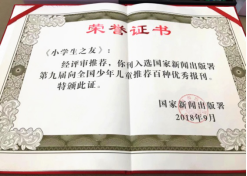 荣誉证书
《小学生之友》：
经评审推荐，你刊入选国家新闻出版署
第九届向全国少年儿童推荐百种优秀报刊。
特颁此证。
国家新闻出版署
2018年9月